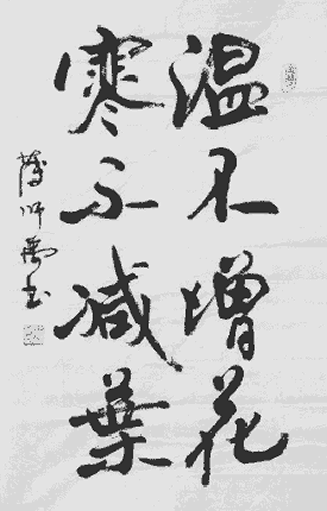 温不增花
寒不减葉